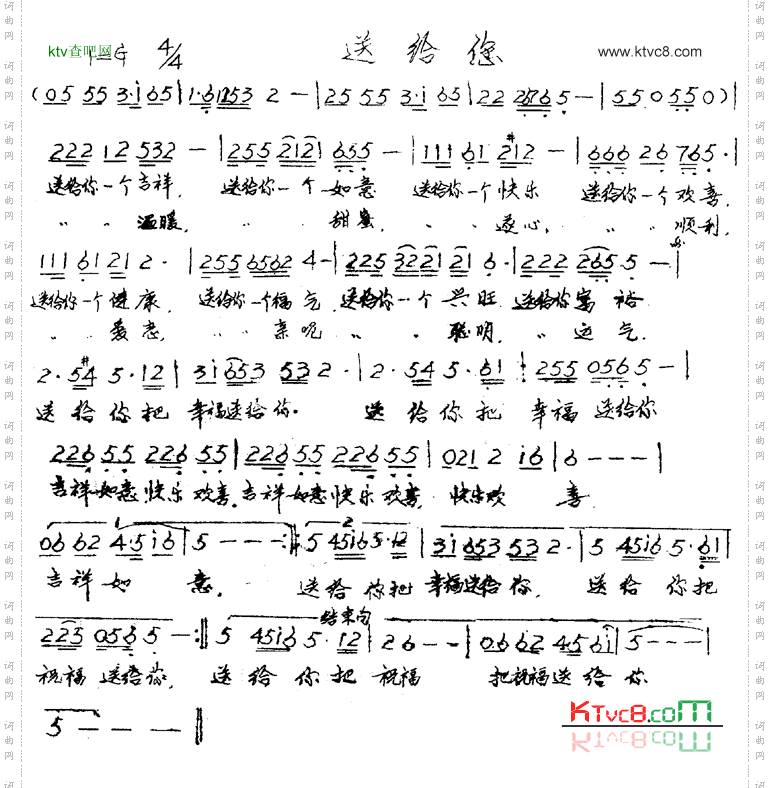 ktv查吧网 1=G 4/4 送给您 www.ktvc8.com
(05 55 3·i 65|1·6 1253 2 -|25 55 3·i 65|22 2765 5 -|55 0 55 0)|
222 12 532 -|255 2121 655 -|111 61 212 -|666 26 765·|
送给你一个吉祥, 送给你一个 如意 送给你一个快乐 送给你一个欢喜,
〃 〃 温暖, 〃 甜蜜 〃 〃 遂心, 〃 〃 顺利,
111 61 21 2·|255 6562 4-|225 3221 21 6·|222 265 5 -|
送给你一个健康, 送给你一个福气, 送给你一个 兴旺 送给你富裕
〃 〃 〃 〃 亲昵 〃 〃 聪明, 〃 运气.
2·#54 5·12|31653 532·|2·54 5·61|255 0565 -|
送给你把 幸福送给你. 送给你把 幸福 送给你
226 55 226 55|226 55 226 55|021 2 i6|6 - - -|
吉祥如意 快乐欢喜, 吉祥如意快乐欢喜, 快乐欢 喜
06 62 4·5 i6|5 - - -:|5 45i6 5·12|3i653 532·|5 45i6 5·61|
吉祥如 意. 送给你把 幸福送给你, 送给你把
结束句
225 0565 -:‖5 45i6 5·12|26 - -|0662 4·56i|5 - - -|
祝福 送给你, 送给你把 祝福 把祝福送给你
5 - - -‖
KTvc8.com
词曲网